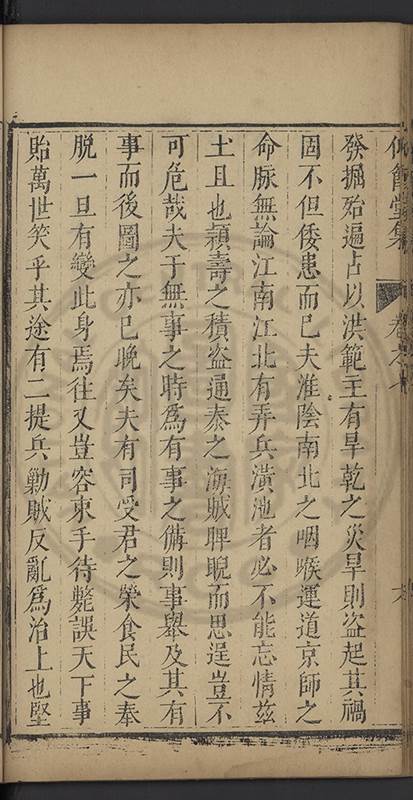 發掘殆遍占以洪範主有旱乾之災旱則盗起其禍
固不但倭患而已夫淮陰南北之咽喉運道京師之
命脉無論江南江北有弄兵潢池者必不能忘情兹
土且也頴壽之積盗通泰之海賊睥睨而思逞豈不
可危哉夫于無事之時爲有事之備則事舉及其有
事而後圖之亦已晚矣夫有司受君之榮食民之奉
脱一旦有變此身焉往又豈容束手待斃誤天下事
貽萬世笑乎其途有二提兵勦賊反亂爲治上也堅